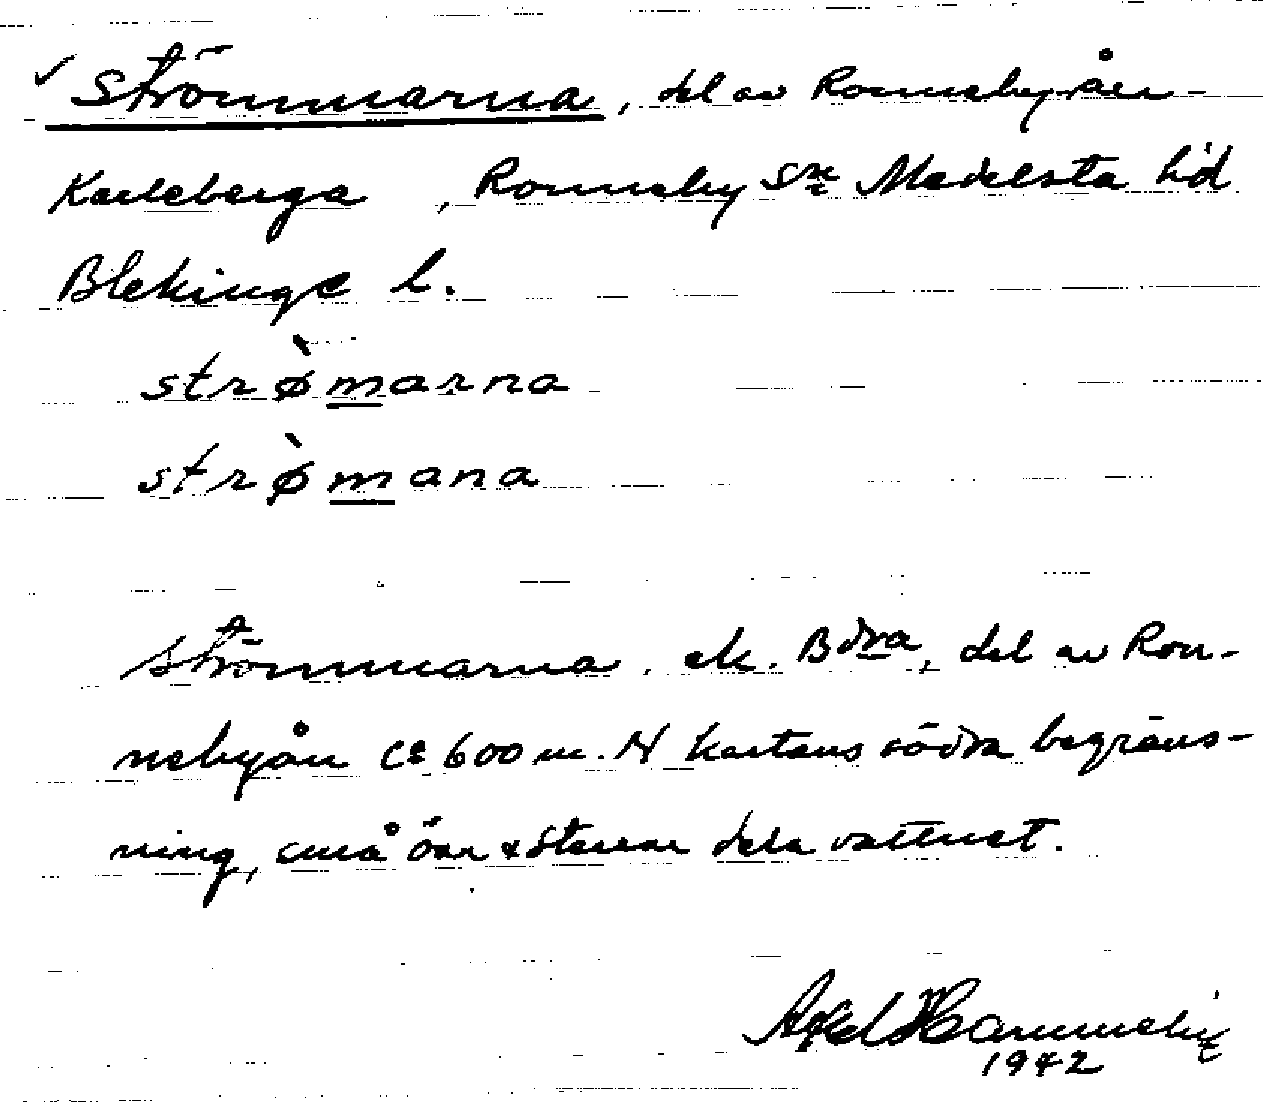 ✓ Strömmarna, del av Ronnebyån -
Karleberga , Ronneby sn Medelsta hd
Blekinge l.
strø̀marna
strø̀mana
Strömmarna. ek. Bdra, del av Ron-
nebyån ca 600 m. N kartans södra begräns-
ning, små öar & stenar dela vattnet.
Axel
1942